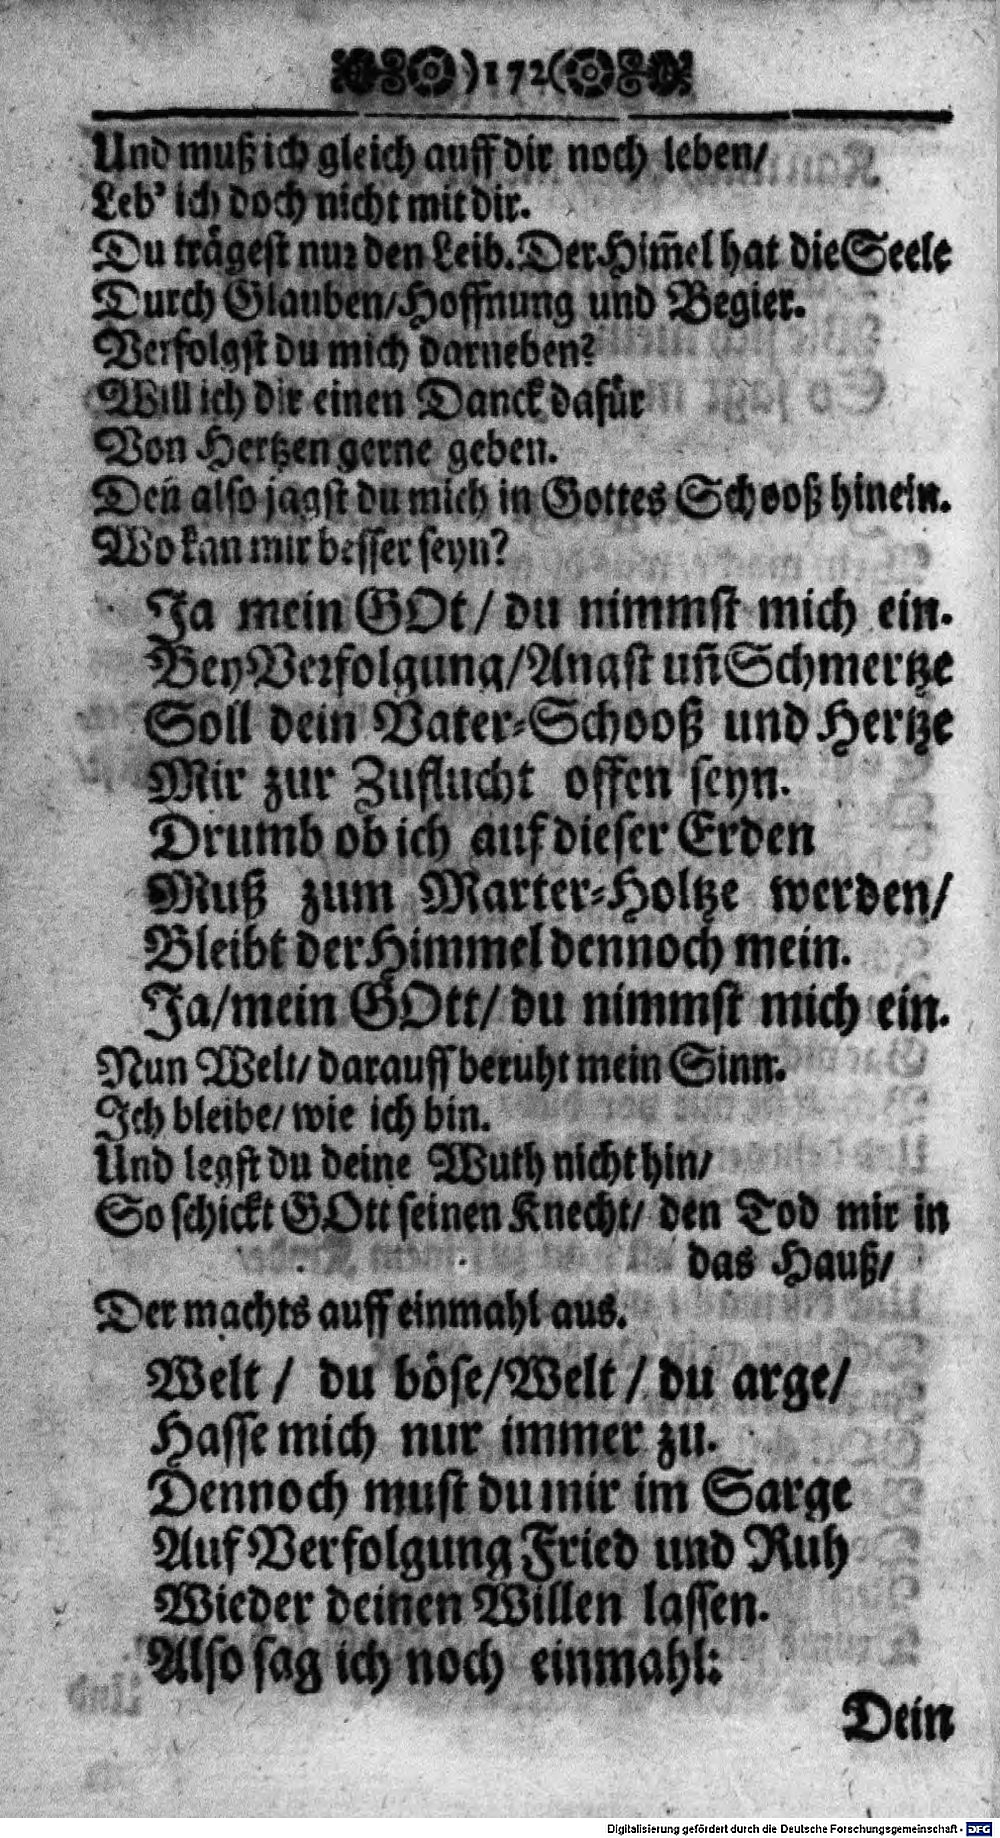 )172(
Und muß ich gleich auff dir noch leben/
Leb' ich doch nicht mit dir.
Du trägest nur den Leib. Der Him̅el hat die Seele
Durch Glauben/Hoffnung und Begier.
Verfolgst du mich darneben?
Will ich dir einen Danck dafür
Von Hertzen gerne geben.
Den̅ also jagst du mich in Gottes Schooß hinein.
Wo kan mir besser seyn?
Ja mein GOt/ du nimmst mich ein.
Bey Verfolgung/Angst un̅ Schmertze
Soll dein Vater-Schooß und Hertze
Mir zur Zuflucht offen seyn.
Drumb ob ich auf dieser Erden
Muß zum Marter-Holtze werden/
Bleibt der Himmel dennoch mein.
Ja/mein GOtt/ du nimmst mich ein.
Nun Welt/ darauff beruht mein Sinn.
Ich bleibe/ wie ich bin.
Und legst du deine Wuth nicht hin/
So schickt GOtt seinen Knecht/ den Tod mir in
das Hauß/
Der machts auff einmahl aus.
Welt / du böse/Welt / du arge/
Hasse mich nur immer zu.
Dennoch must du mir im Sarge
Auf Verfolgung Fried und Ruh
Wieder deinen Willen lassen.
Also sag ich noch einmahl:
Dein
Digitalisierung gefördert durch die Deutsche Forschungsgemeinschaft - DFG